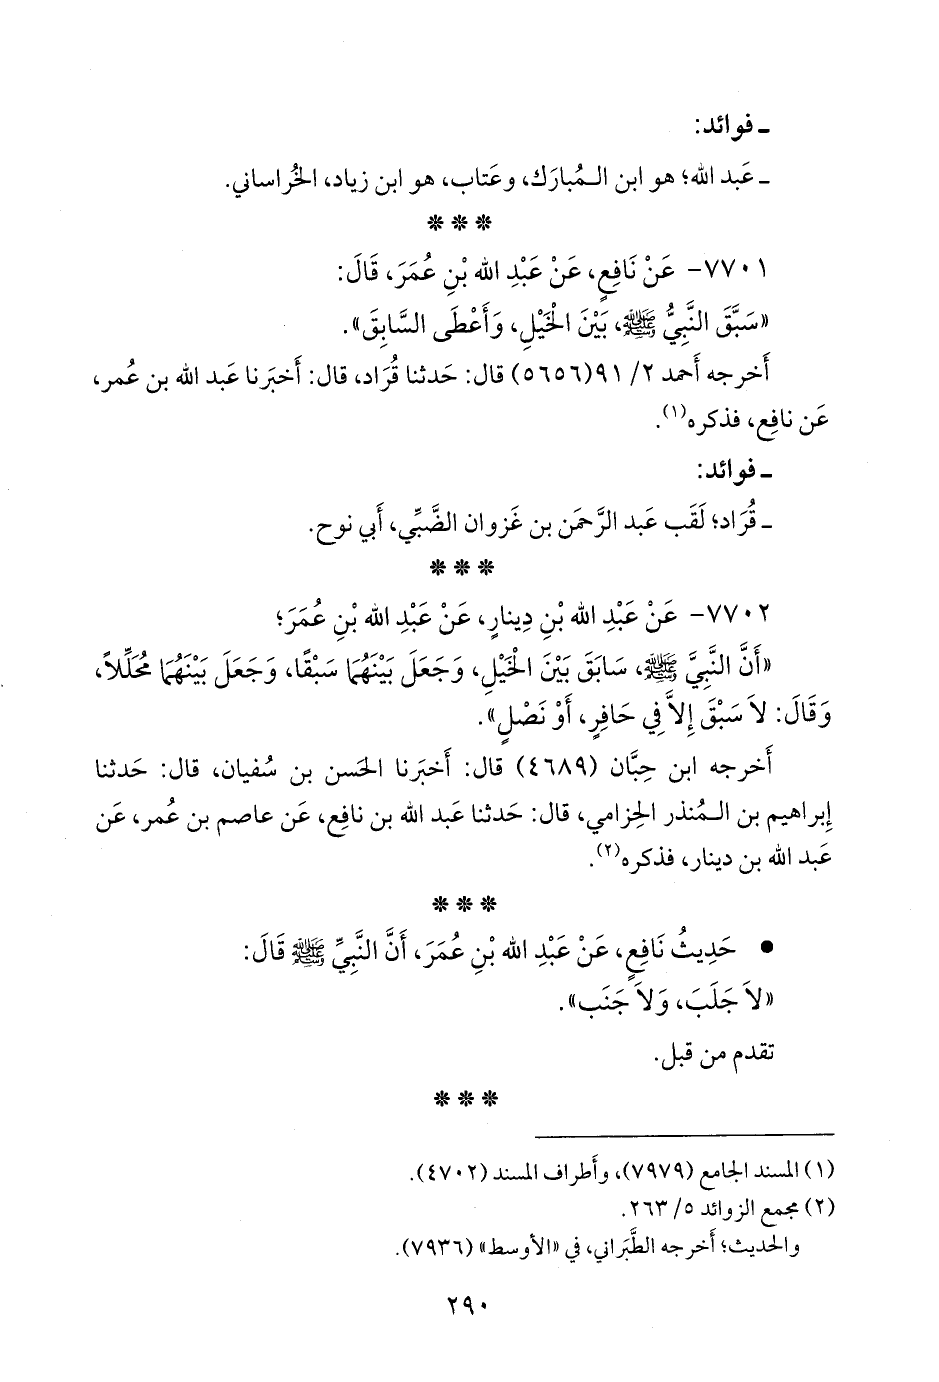 ـ فوائد:
ـ عَبد الله؛ هو ابن الـمُبارَك، وعَتاب، هو ابن زياد، الخُراساني.
* * *
٧٧٠١- عَنْ نَافِعٍ، عَنْ عَبْدِ الله بْنِ عُمَرَ، قَالَ:
«سَبَّقَ النَّبِيُّ ﷺ، بَيْنَ الْخَيْلِ، وَأَعْطَى السَّابِقَ».
أَخرجه أَحمد ٢/ ٩١(٥٦٥٦) قال: حَدثنا قُرَاد، قال: أَخبَرنا عَبد الله بن عُمر،
عَن نافِع، فذكره(١).
ـ فوائد:
ـ قُرَاد؛ لَقَب عَبد الرَّحمَن بن غَزوان الضَّبِّي، أَبي نوح.
* * *
٧٧٠٢- عَنْ عَبْدِ الله بْنِ دِينارٍ، عَنْ عَبْدِ الله بْنِ عُمَرَ؛
«أَنَّ النَّبِيَّ ﷺ، سَابَقَ بَيْنَ الْخَيْلِ، وَجَعَلَ بَيْنَهُمَا سَبْقًا، وَجَعَلَ بَيْنَهُمَا مُحَلِّلاً،
وَقَالَ: لاَ سَبْقَ إِلاَّ فِي حَافِرٍ، أَوْ نَصْلٍ».
أَخرجه ابن حِبَّان (٤٦٨٩) قال: أَخبَرنا الحَسن بن سُفيان، قال: حَدثنا
إِبراهيم بن الـمُنذر الحِزامي، قال: حَدثنا عَبد الله بن نافِع، عَن عاصم بن عُمر، عَن
عَبد الله بن دينار، فذكره(٢).
* * *
• حَدِيثُ نَافِعٍ، عَنْ عَبْدِ الله بْنِ عُمَرَ، أَنَّ النَّبِيِّ ﷺ قَالَ:
«لاَ جَلَبَ، وَلاَ جَنَب».
تقدم من قبل.
* * *
(١) المسند الجامع (٧٩٧٩)، وأَطراف المسند (٤٧٠٢).
(٢) مجمع الزوائد ٥/ ٢٦٣.
والحديث؛ أَخرجه الطَّبَراني، في «الأوسط» (٧٩٣٦).
٢٩٠